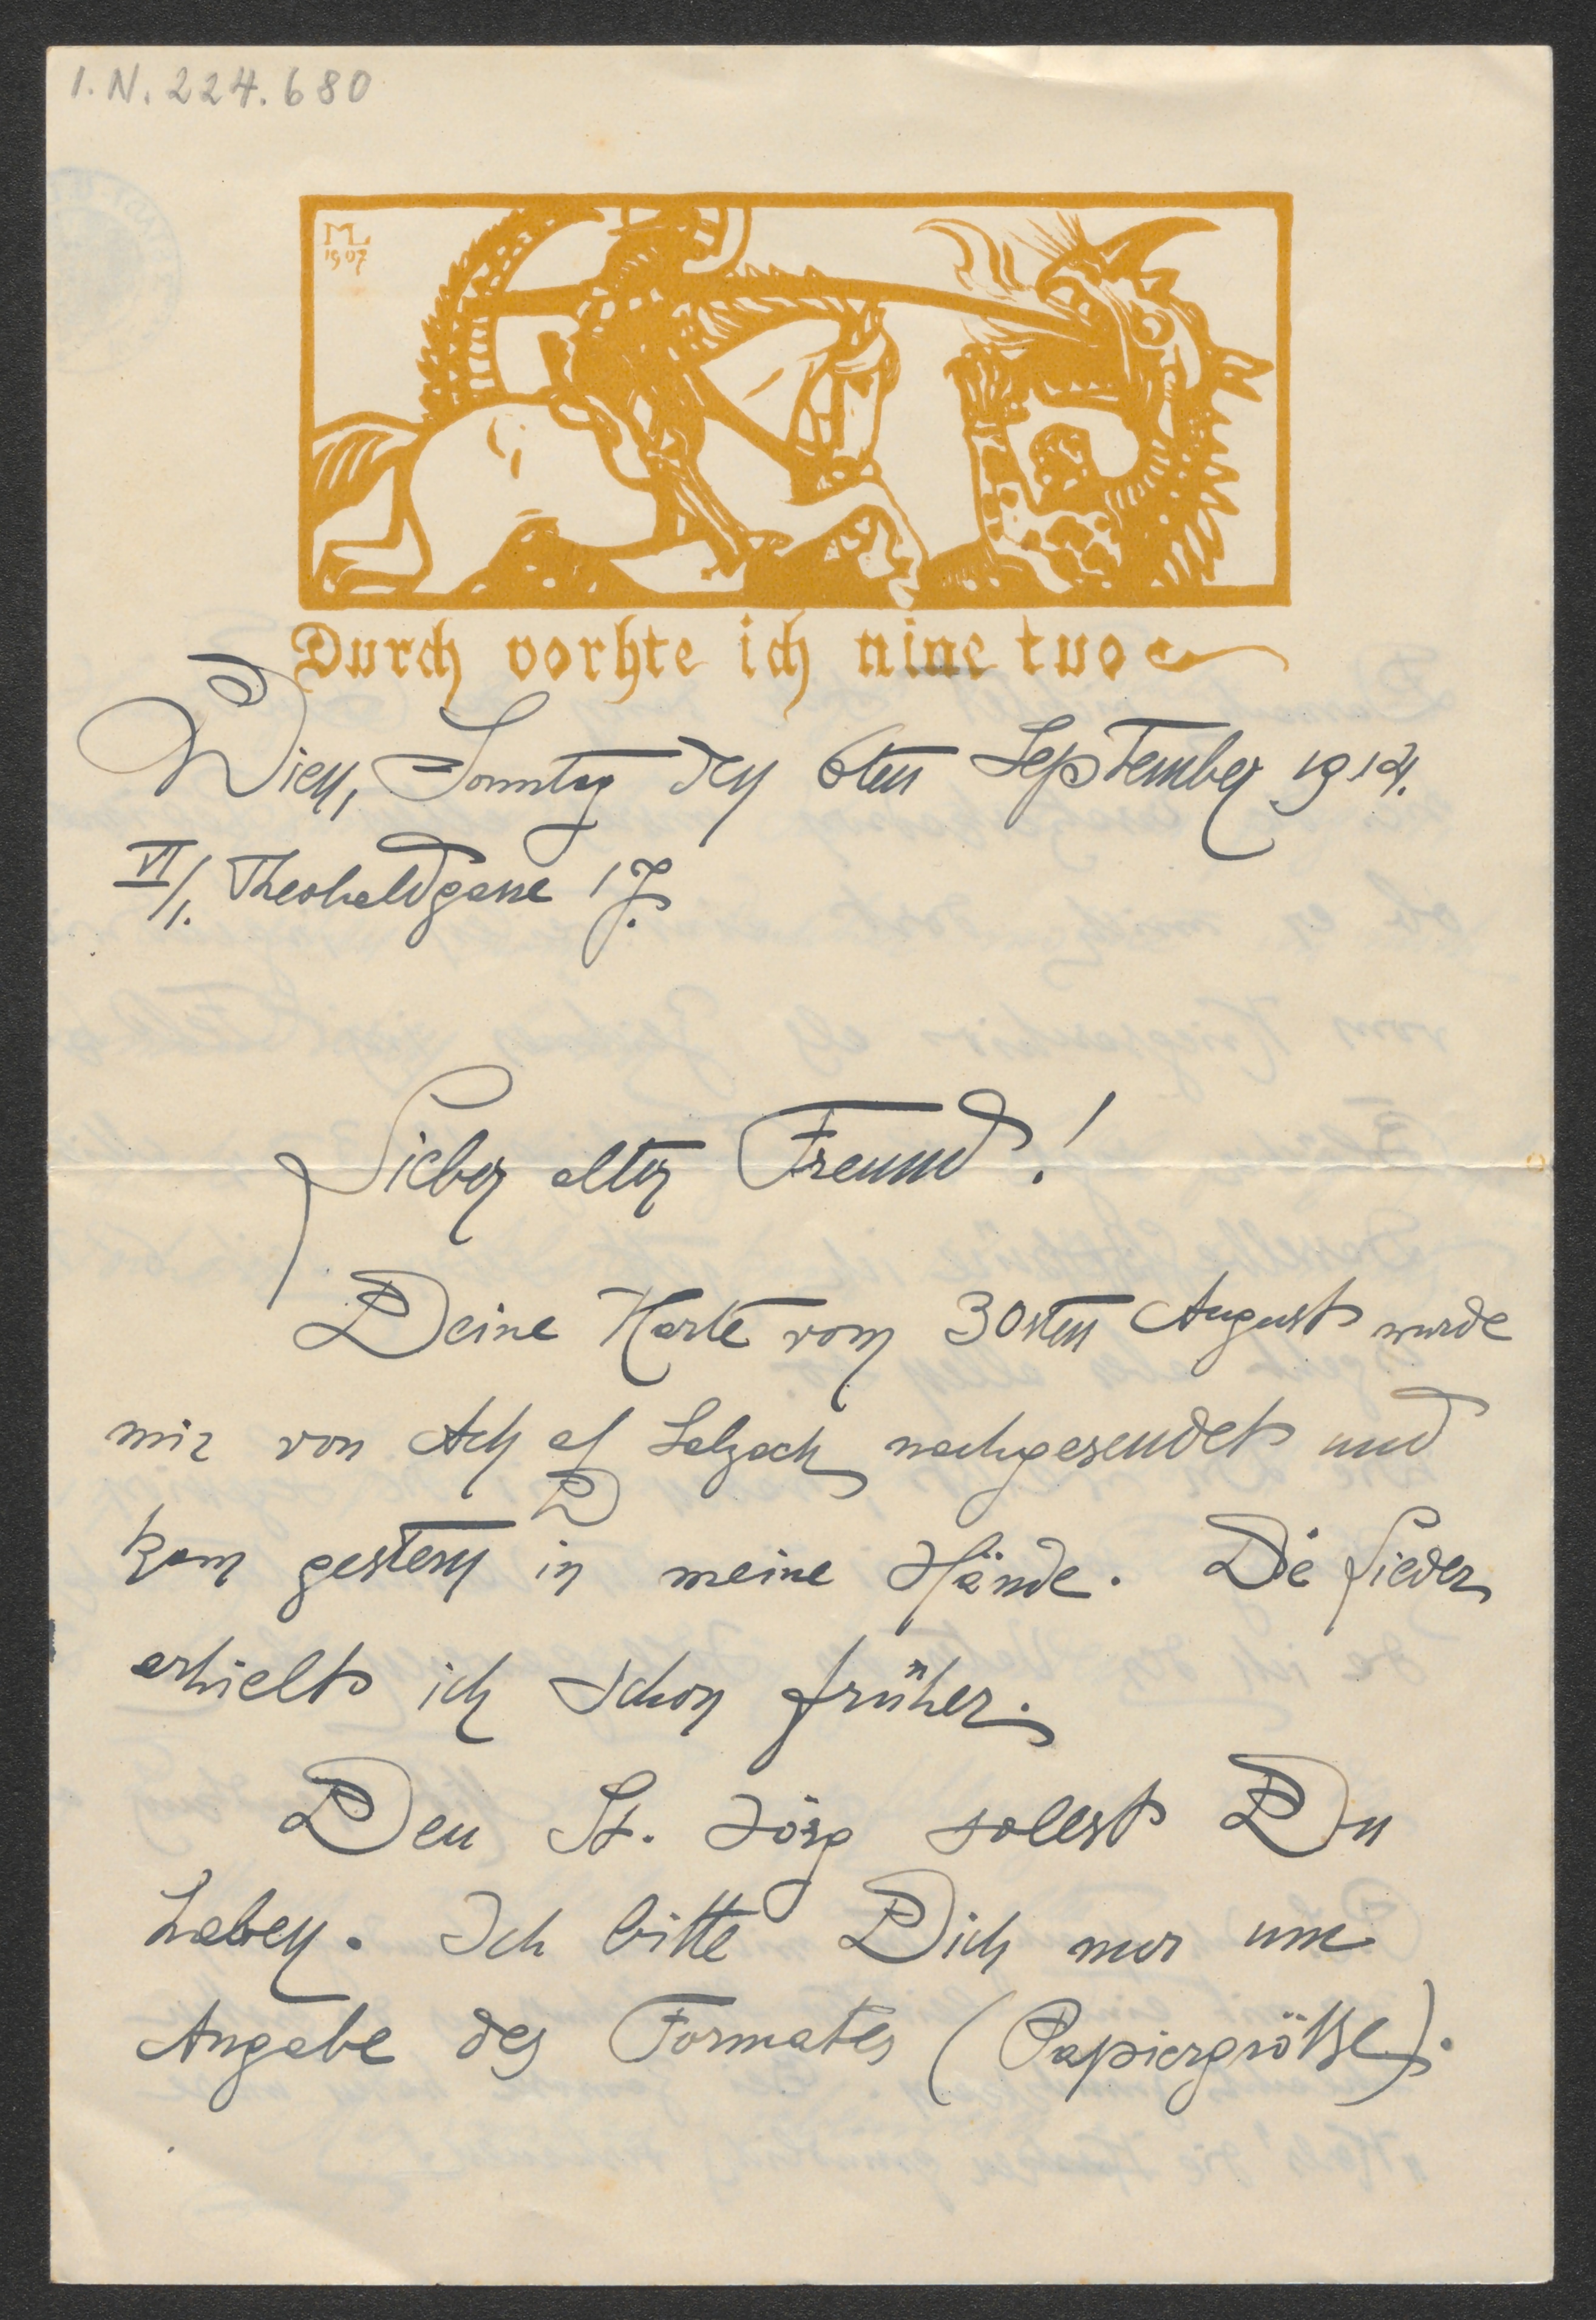 I.N. 224.680
ML
1907
Durch vorhte ich nine tuo
Wien, Sonntag den 6ten September 1914.
VI/1. Theobaldgasse 17.
Lieber alter Freund!
Deine Karte vom 30sten August wurde
mir von Ach a/ Salzach nachgesendet und
kam gestern in meine Hände. Die Lieder
erhielt ich schon früher.
Den St. Jörg sollst Du
haben. Ich bitte Dich nur um
Angabe des Formates (Papiergröße).